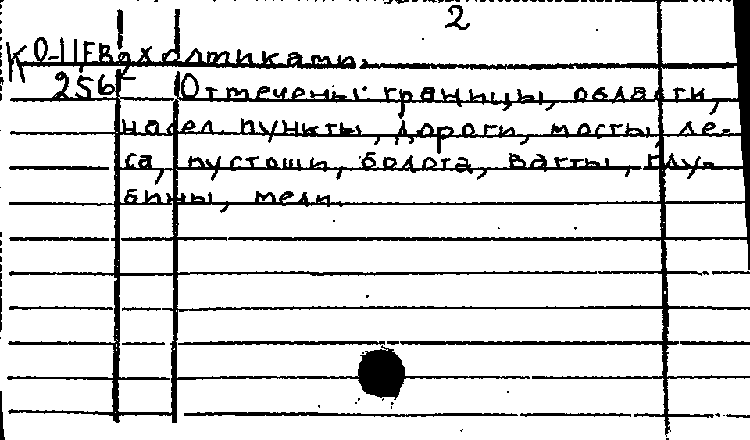 2
К 0-11FB холмиками.
256 Отмечены: границы, области,
насел. пункты, дороги, мосты, ле-
са, пустоши, болота, ватты, глу-
бины, мели.